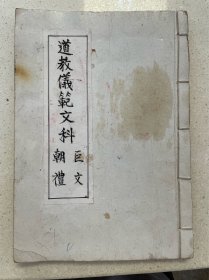 道教儀範文科
巨文
朝禮